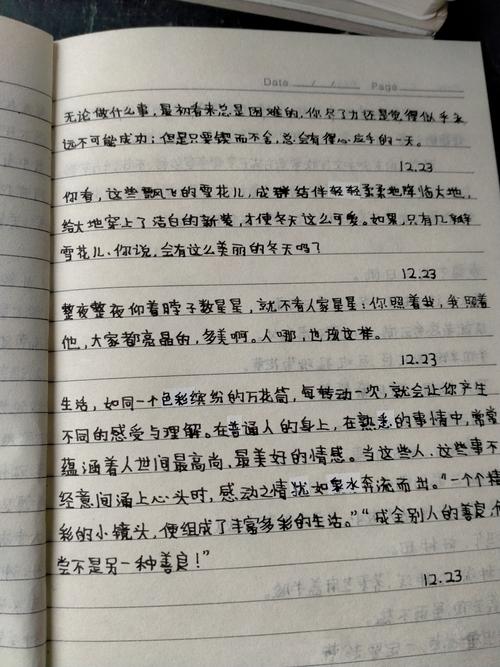 Date / / Page
无论做什么事，最初看来总是困难的，你尽了力还是觉得似乎永
远不可能成功；但是只要锲而不舍，总会有得心应手的一天。
12.23
你看，这些飘飞的雪花儿，成群结伴轻轻柔柔地降临大地，
给大地穿上了洁白的新装，才使冬天这么可爱。如果，只有几瓣
雪花儿、你说，会有这么美丽的冬天吗？
12.23
整夜整夜仰着脖子数星星，就不看人家星星：你照着我，我照着
他，大家都亮晶的，多美啊。人哪，也该这样。
12.23
生活，如同一个色彩缤纷的万花筒，每转动一次，就会让你产生
不同的感受与理解。在普通人的身上，在熟悉的事情中，常常
蕴涵着人世间最高尚、最美好的情感。当这些人、这些事不
经意间涌上心头时，感动之情犹如泉水奔流而出。“一个个精
彩的小镜头，便组成了丰富多彩的生活。”“成全别人的善良，何
尝不是另一种善良！”
12.23